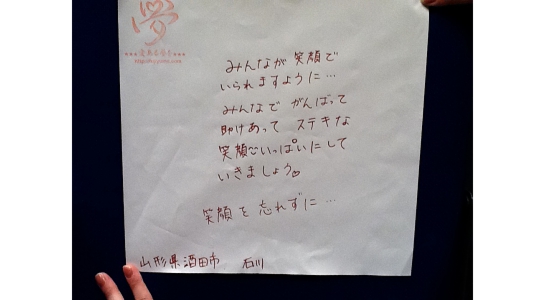 夢
みんなが 笑顔で
いられますように…
みんなで がんばって
助けあって ステキな
笑顔でいっぱいにして
いきましょう
笑顔を忘れずに…
山形県酒田市 石川